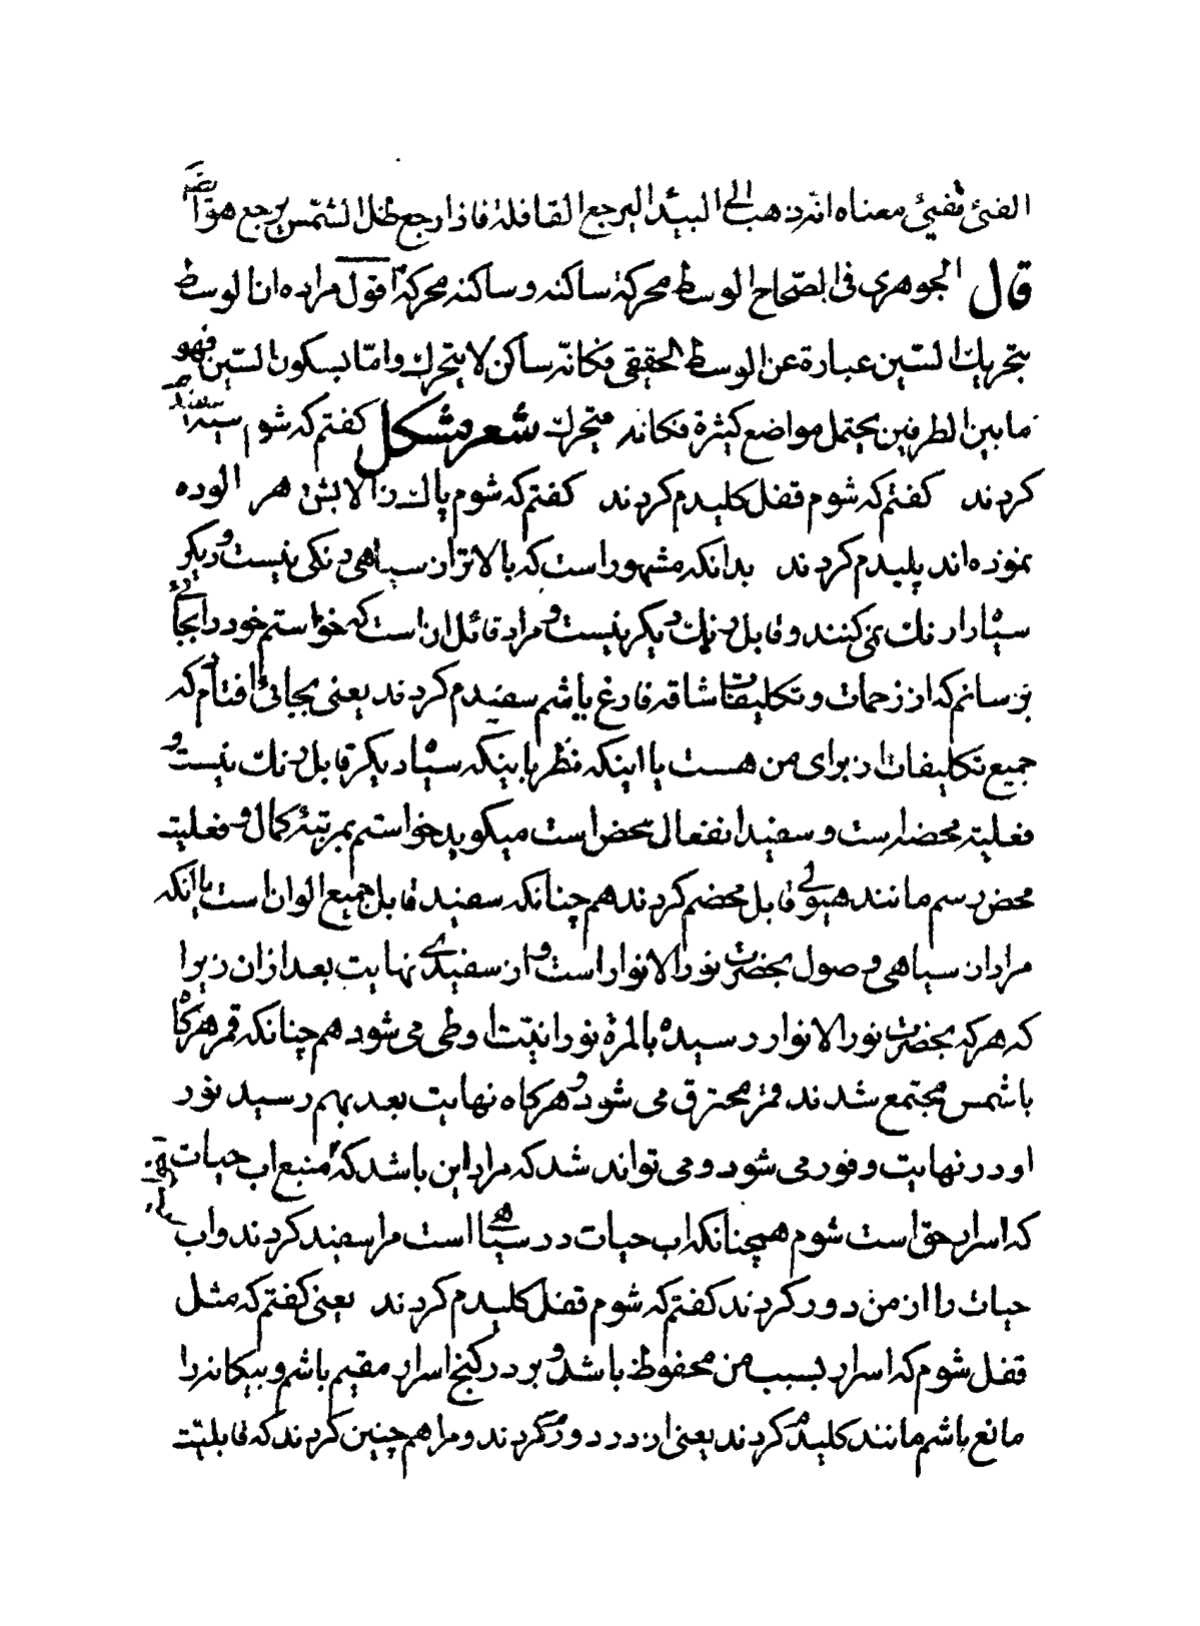 الفئ تفیئ معناه انه ذهب الی البید البرجع القافلة فاذا رجع ظل الشمس یرجع هو ایضا
قال الجوهری فی الصحاح الوسط محرکة ساکنه وساکنه محرکة اقول مراده ان الوسط
بتحریك السین عبارة عن الوسط الحقیقی فکانه ساکن لا یتحرك واما بسکون السین فهو
ما بین الطرفین یحتمل مواضع کثیرة فکانه متحرك شعر مشکل کفتم که شوم سیه سفیدم
کردند کفتم که شوم قفل کلیدم کردند کفتم که شوم پاك ز الایش هر الوده
نموده اند پلیدم کردند بدانکه مشهور است که بالاتر از سیاهی رنکی نیست و دیکر
سیاه را رنك نمی کنند و قابل رنك دیکر نیست و مراد قائل ان است که خواستم خود را بجائی
برسانم که از زحمات و تکلیفات شاقه فارغ باشم سفیدم کردند یعنی بجائی افتادم که
جمیع تکلیفات از برای من هست یا اینکه نظر باینکه سیاه دیکر قابل رنك نیست و
فعلیة محضه است و سفید انفعال محض است میکوید خواستم بمرتبۀ کمال و فعلیته
محض رسم مانند هیولی قابل محضم کردند هم چنانکه سفید قابل جمیع الوان است یا انکه
مراد از سیاهی وصول بحضرت نور الانوار است و از سفیدی نهایت بعد از ان زیرا
که هرکه بحضرت نور الانوار رسیده بالمرة نورانیت او طی می شود هم چنانکه قمر هرکاه
با شمس مجتمع شدند قمر محترق می شود و هرکاه نهایت بعد بهم رسید نور
او در نهایت وفور می شود و می تواند شد که مراد این باشد که منبع اب حیات
که اسرار حق است شوم همچنانکه اب حیات در سیاهی است مرا سفید کردند و اب
حیات را از من دور کردند کفتم که شوم قفل کلیدم کردند یعنی کفتم که مثل
قفل شوم که اسرار بسبب من محفوظ باشد و بر در کنج اسرار مقیم باشم و بیکانه را
مانع باشم مانند کلیدم کردند یعنی از در دورم کردند و مرا هم چنین کردند که قابلیت